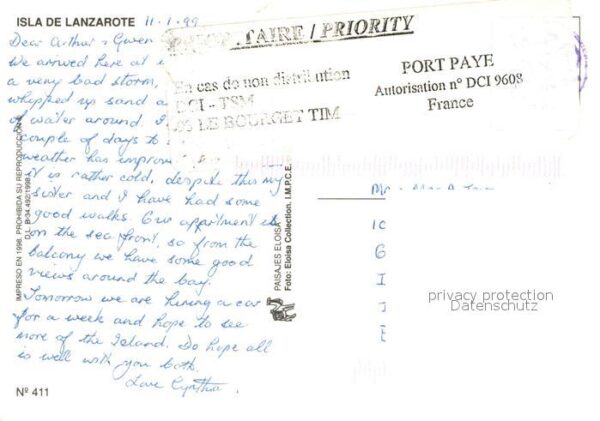 ISLA DE LANZAROTE 11-1-99
Dear Arthur & Gwen
We arrived here at
a very bad storm,
whipped up sand a
of water around. I
couple of days to
weather has improv
it is rather cold, despite this my
sister and I have had some
good walks. Our appartment is
on the sea front, so from the
balcony we have some good
views around the bay.
Tomorrow we are hiring a car
for a week and hope to see
more of the Island. Do hope all
is well with you both.
Love Cynthia.
Nº 411
IMPRESO EN 1998. PROHIBIDA SU REPRODUCCIÓN
PAISAJES ELOISA
Foto: Eloisa Collection. I.M.P.C.E.
TAIRE / PRIORITY
En cas de non distribution
DCI - TSM
LE BOURGET TIM
PORT PAYE
Autorisation nº DCI 9608
France
Mr
privacy protection
Datenschutz